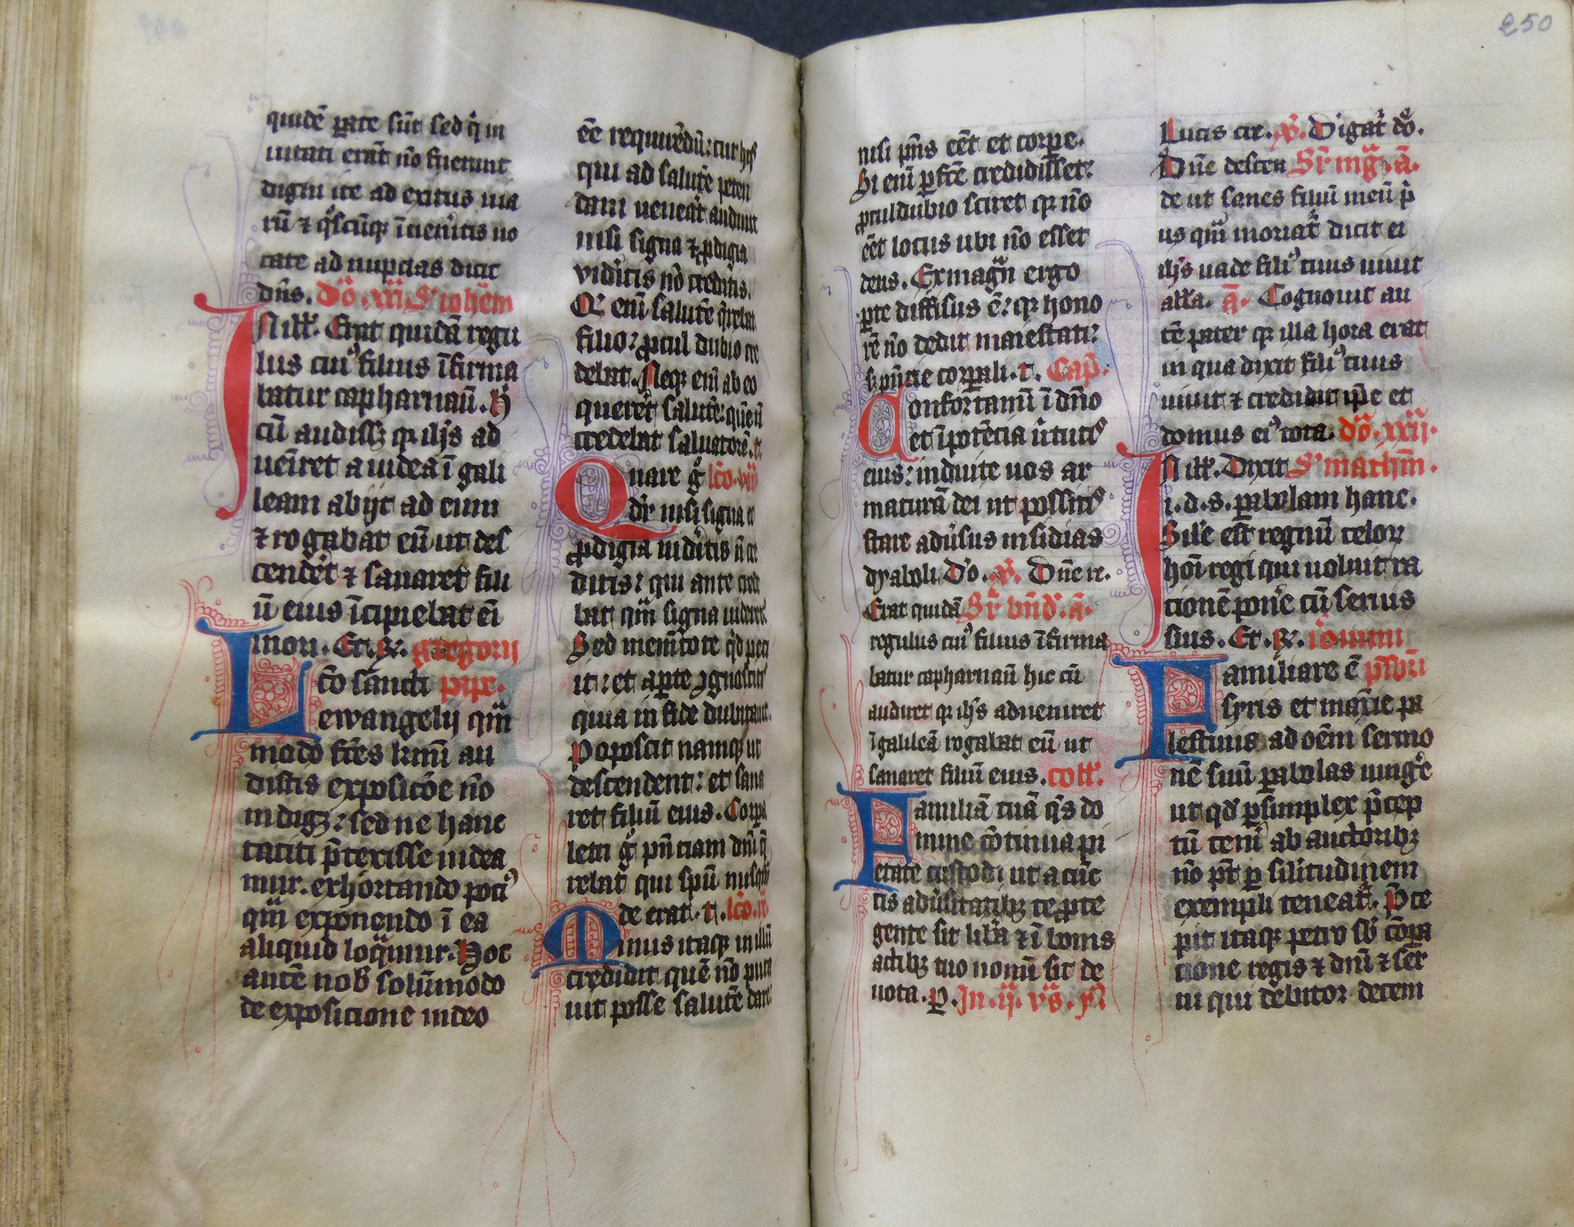 quidē parate sūt sed q̄ in
uitati erāt nō fuerunt
digni ite ad exitus uia
rū ⁊ q̄scūq̄ īueneritis uo
cate ad nupcias dicit
dn̄s. Dō xxi S' iohēm
In ill'. Erat quidā regu
lus cui' filius īfirma
batur capharnaū. H'
cū audiss; q̄ ih̄s ad
ueīret a iudea ī gali
leam abijt ad eum
⁊ rogabat eū ut des
cenderet ⁊ sanaret fili
ū eius īcipiebat eī
mori. Et R. gregorij
Lc̄o sancti pape.
ewangelij qm̄
modo fr̄es kr̄mi au
distis exposicōe nō
indiget: sed ne hanc
taciti p̄terisse uidea
mur. exhortando poci'
qm̄ exponendo ī ea
aliquid loq̄mur. Hoc
autē nob' solūmodo
de exposicione uideo
ēē requirēdū: cur hijs
qui ad salutē peten
dam uenerat audiuit
nisi signa ⁊ prodigia
videritis nō creditis.
Q' enī salutē q̄rebat
filio: procul dubio cre
debat. Neq̄ enī ab eo
quereret salutē: quē nō
credebat saluatorē. t.
Quare g̊ lc̄o. viij
d'r nisi signa et
prodigia uideritis nō cre
ditis: qui ante cred
bat qm̄ signa uideret
Sed mem̄tote qd̄ peci
it: et aperte ɔgnoscitis
quia in fide dubitauit.
Poposcit namq̄ ut
descenderet: et sana
ret filiū eius. Corpa
lem g̊ pn̄ciam dn̄i q̄
rebat qui spū nusq̄
de erat. t. lc̄o. ix.
Minus itaq̄ in illū
credidit quē nō puta
uit posse salutē dare
nisi pn̄s eēt et corpe.
Si enī perfcē credidisset:
proculdubio sciret q̄ nō
eēt locus ubi nō esset
deus. Ex magn̄ ergo
parte diffisus ē: q̄ hono
rē nō dedit maiestati:
s; pn̄cie corporali. t. Cap.
Confortamī ī dn̄o
et ī potēcia ūtutis
eius: induite uos ar
maturā dei ut possitis
stare aduersus insidias
dyaboli. Dō. V. Dn̄e re.
Erat quidā Sr̄ bn̄d'. ā.
regulus cui' filius īfirma
batur capharnaū hic cū
audiret q̄ ih̄s adueniret
ī galileā rogabat eū ut
sanaret filiū eius. coll'.
Familiā tuā q̄s do
mine cōtinua pi
etate custodi ut a cūc
tis aduersitatibz te prote
gente sit lib'a ⁊ ī bonis
actibz tuo nomī sit de
uota. p. In. ij. v̄s. y'
Lucis cre. V. Dirigat' dō.
Dn̄e descen Sr̄ mḡ. ā.
de ut sanes filiū meū p̄
us qm̄ moriat' dicit ei
ih̄s uade fili' tuus uiuit
alla. ā. Cognouit au
tē pater q̄ illa hora erat
in qua dixit fili' tuus
uiuit ⁊ credidit ip̄e et
domus ei' tota. dō. xxij.
In ill'. Dixit S' mathm̄.
i. d. s. parabolam hanc.
Sil'e est regnū celor
hōi regi qui uoluit ra
cionē ponere cū seruis
suis. Et. R. ieronimi
Familiare ē pr̄sbri
syris et maxīe pa
lestinis ad oēm sermo
nē suū parabolas iungere
ut qd̄ per simplex p̄cep
tū teneri ab auctoribz
nō pt̄ per similitudinem
exempli teneat'. P̄ce
pit itaq̄ petro sb' cōpa
cione regis ⁊ dn̄i ⁊ ser
ui qui debitor decem